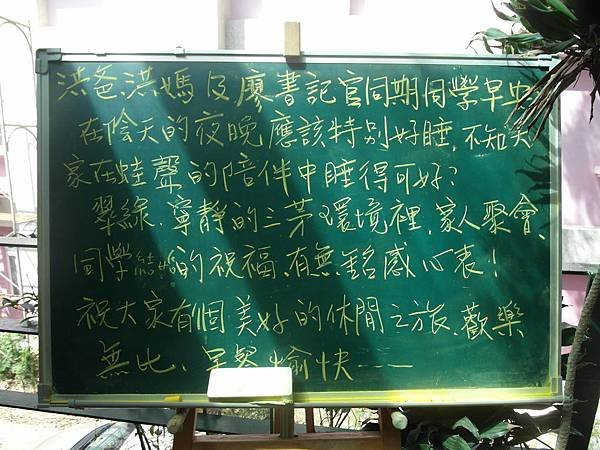 洪爸、洪媽及廖書記官同期同學早安
在陰天的夜晚應該特別好睡，不知大
家在蛙聲的陪伴中睡得可好？
翠綠、寧靜的三芧環境裡，家人聚會、
同學的祝福，有無銘感心表！
祝大家有個美好的休閒之旅、歡樂
無比、早餐愉快——